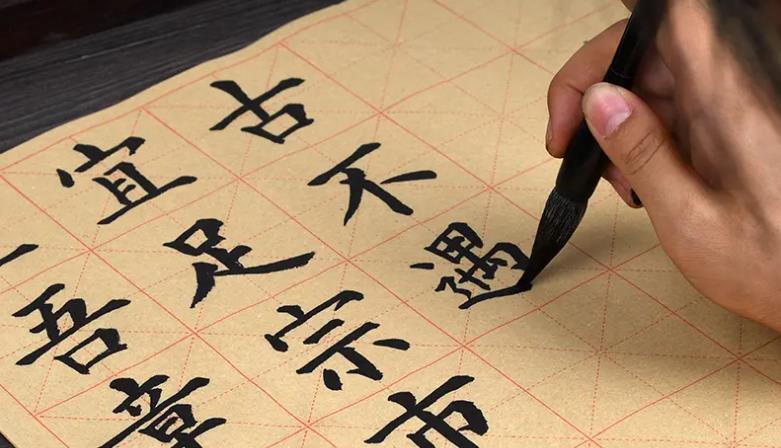 古不遇
宜足宗市
吾章